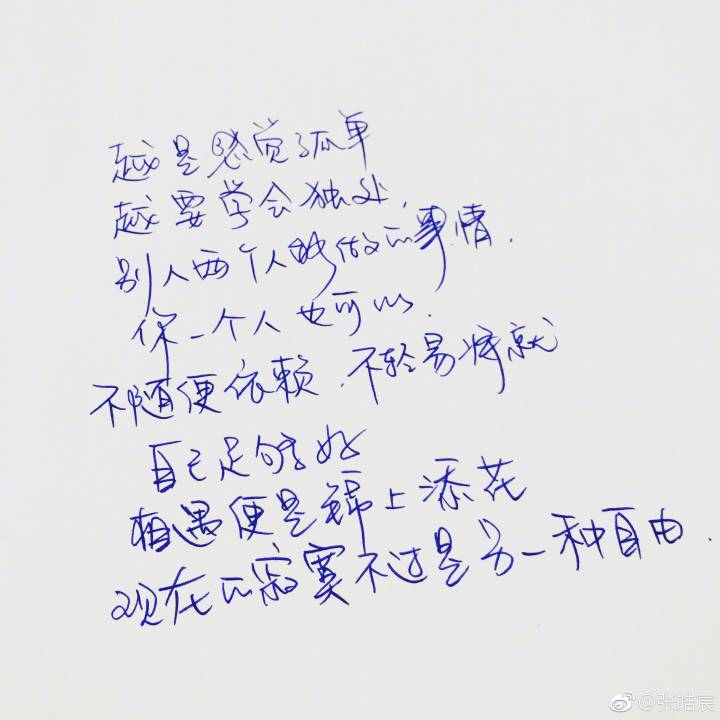 越是感觉孤单
越要学会独处,
别人两个人能做的事情.
你一个人也可以.
不随便依赖.不轻易将就
自己足够好
相遇便是锦上添花
现在的寂寞不过是另一种自由.
@张皓宸